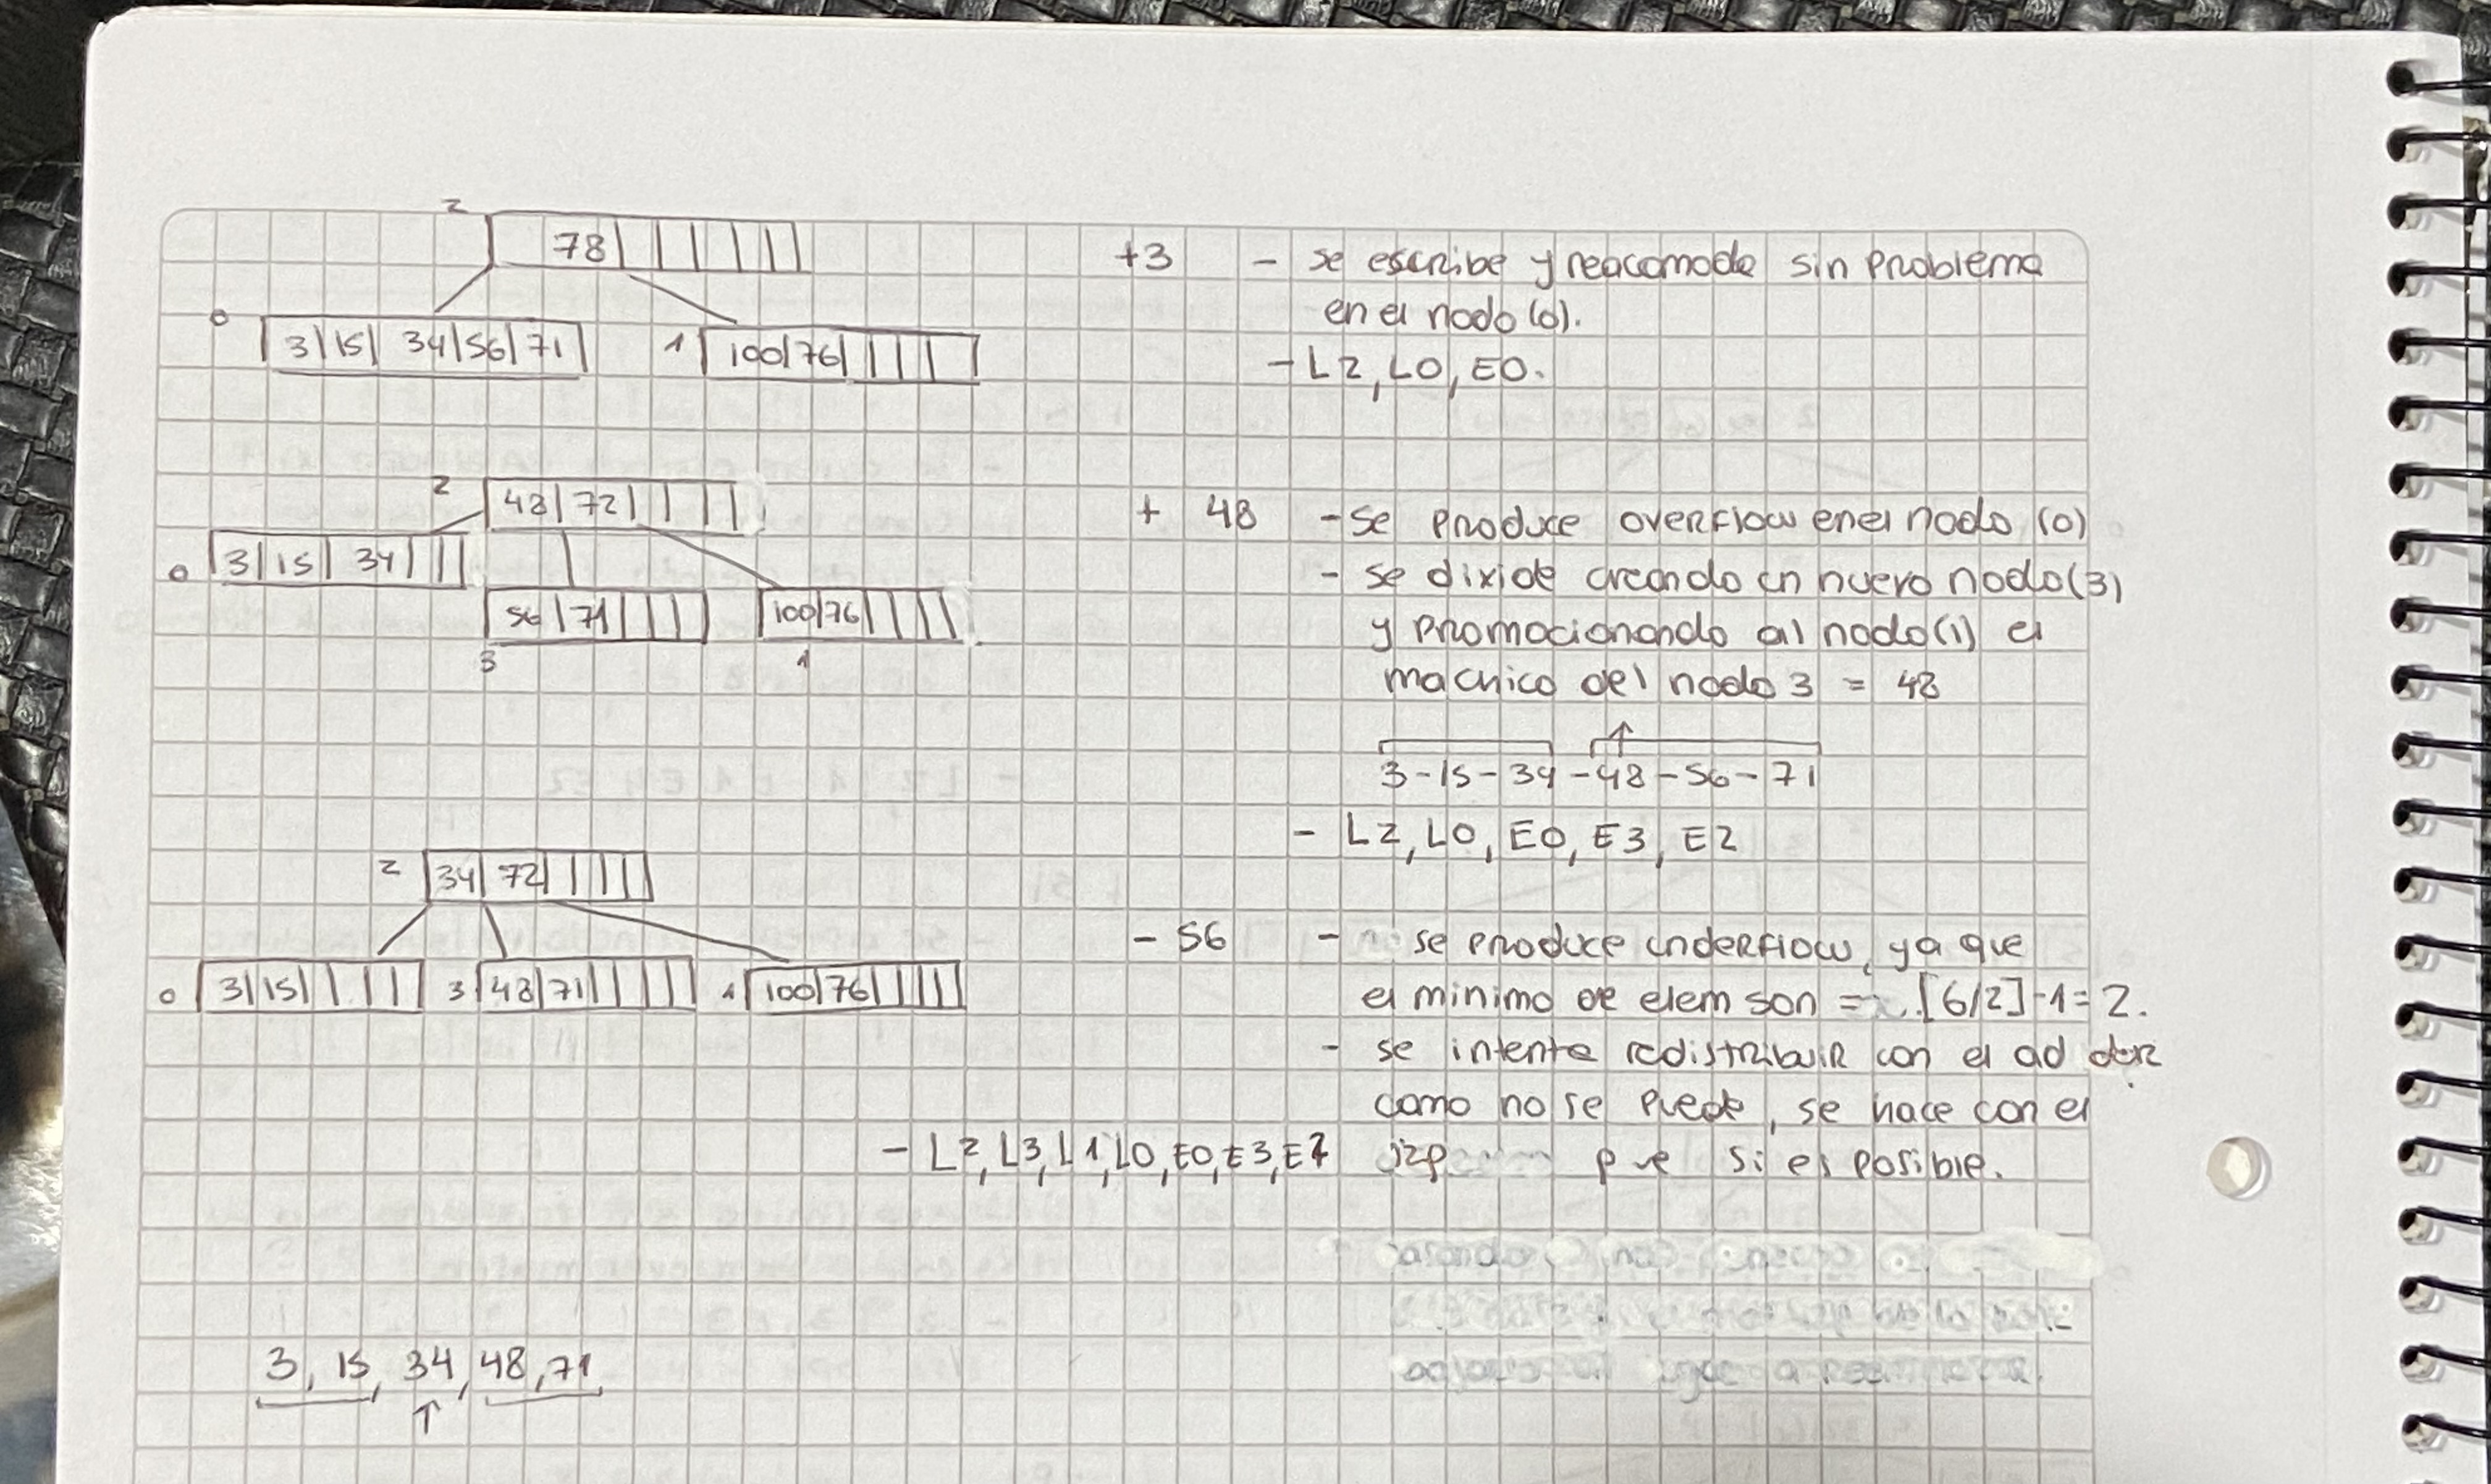 2
78
+3 - se escribe y reacomoda sin problema
en el nodo (0).
- L2, L0, E0.
0 3|15|34|56|71 1 100|76
2 48|72
0 3|15|34
56|71 100|76
3 1
+ 48 - se produce overflow en el nodo (0)
- se divide creando un nuevo nodo (3)
y promocionando al nodo (1) el
machico del nodo 3 = 48
3-15-34-48-56-71
- L2, L0, E0, E3, E2
2 34|72
0 3|15 3 48|71 1 100|76
- 56 - se produce underflow, ya que
el minimo de elem son = [6/2]-1=2.
- se intenta redistribuir con el ad der
como no se puede, se hace con el
izq que si es posible.
- L2, L3, L1, L0, E0, E3,
3, 15, 34, 48, 71